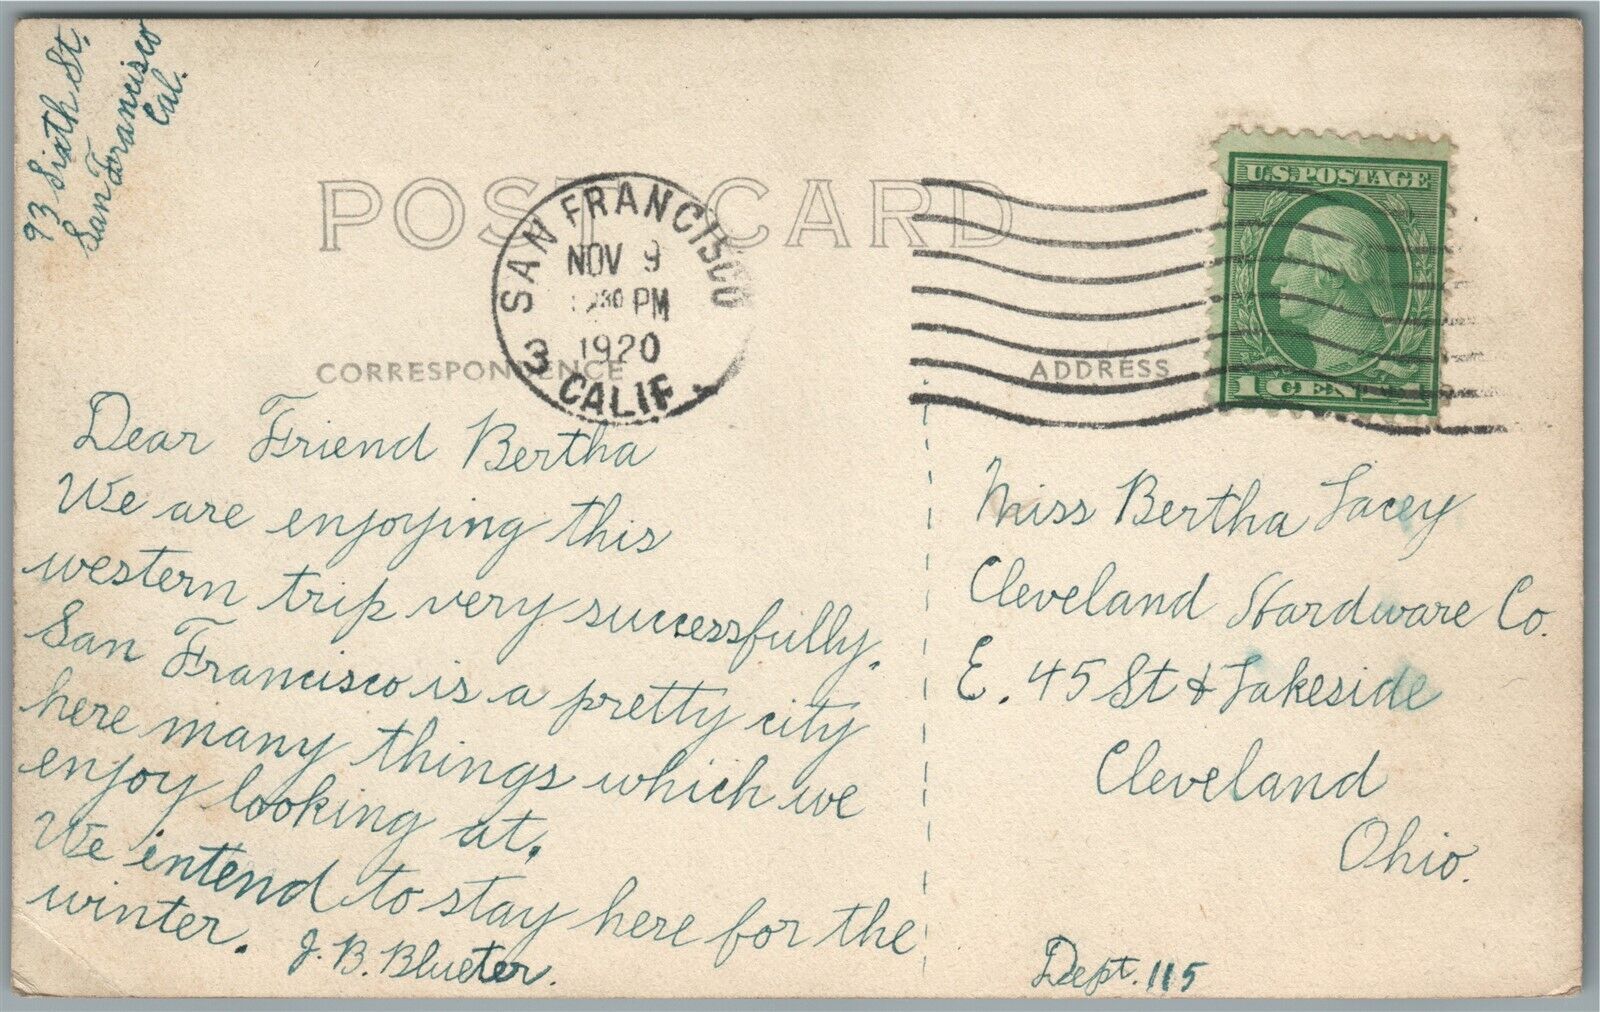 93 Sixth St.
San Francisco
Cal.
POST CARD
SAN FRANCISCO
NOV 9
30 PM
1920
3 CALIF.
U.S. POSTAGE
1 CENT 1
CORRESPONDENCE
ADDRESS
Dear Friend Bertha
We are enjoying this
western trip very successfully.
San Francisco is a pretty city
here many things which we
enjoy looking at.
We intend to stay here for the
winter.
J. B. Blueter.
Miss Bertha Lacey
Cleveland Hardware Co.
E. 45 St & Lakeside
Cleveland
Ohio.
Dept. 115